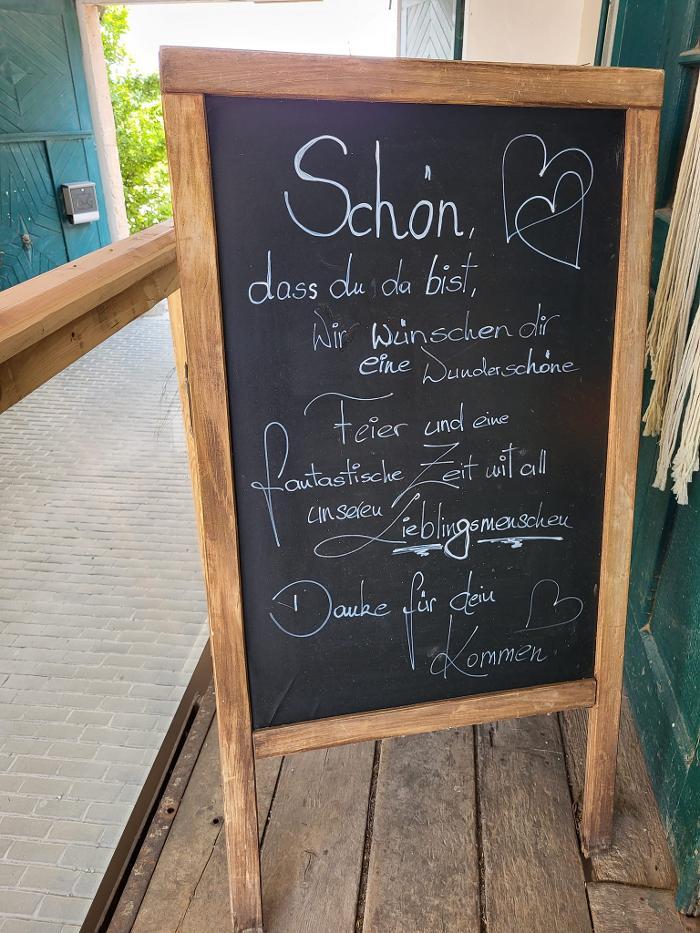 Schön,
dass du da bist,
Wir wünschen dir
eine Wunderschöne
Feier und eine
fantastische Zeit mit all
unseren Lieblingsmenschen
Danke für dein
Kommen